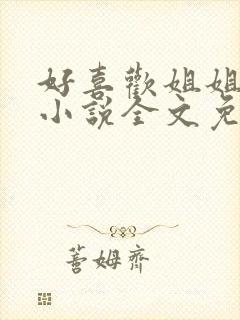 好喜歡姐姐
小說全文免
蓍姆齊